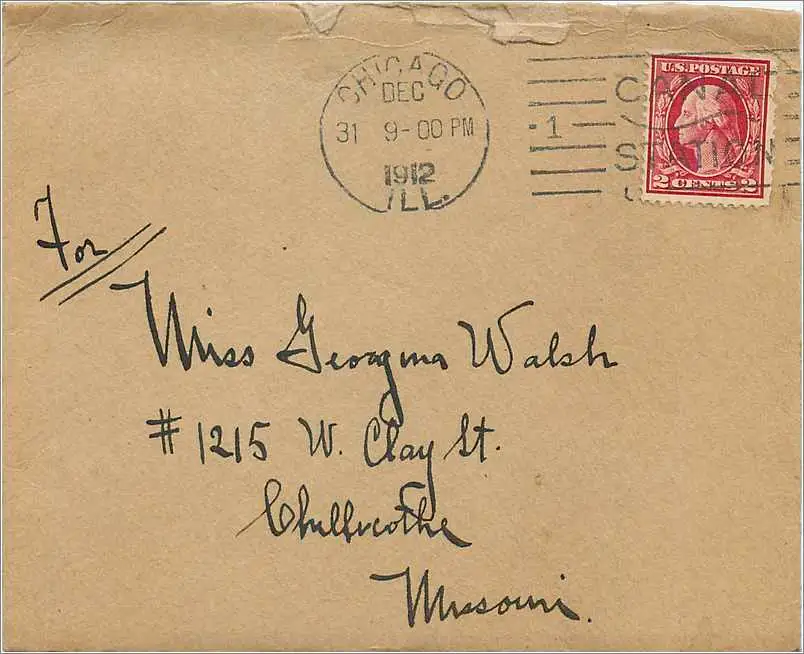 CHICAGO
DEC
31 9-00 PM
1912
ILL.
1
CANAL
STATION
U.S. POSTAGE
2 CENTS 2
For
Miss Georgina Walsh
#1215 W. Clay St.
Chillicothe
Missouri.